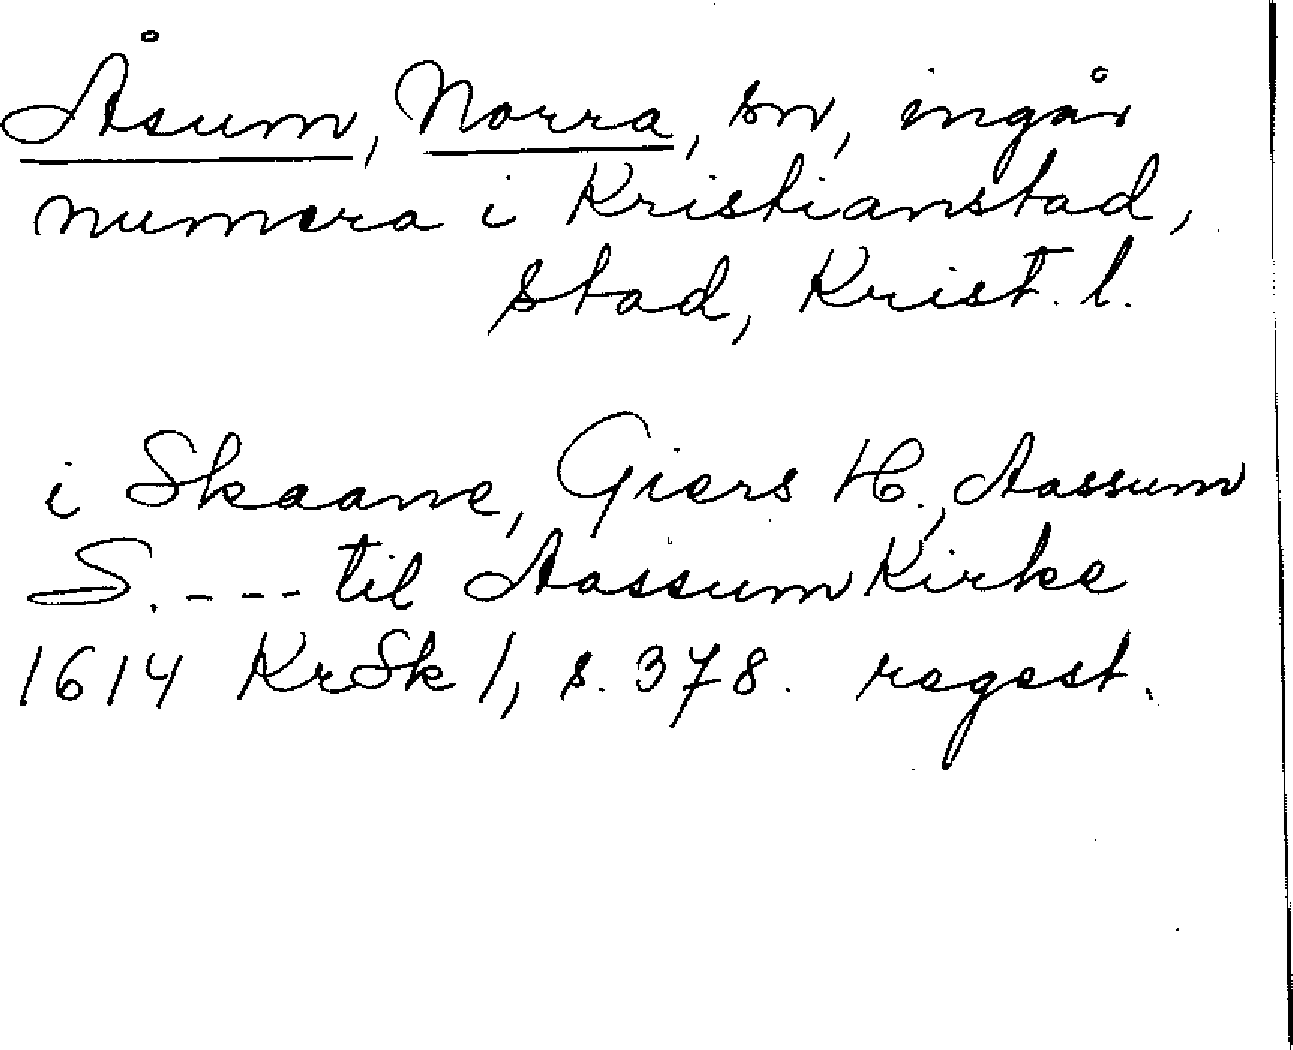 Åsum, Norra, sn, ingår
numera i Kristianstad,
stad, Krist. l.
i Skaane, Giers H., Aassum
S. - - - til Aassum Kirke
1614 KrSk 1, s. 378. regest.